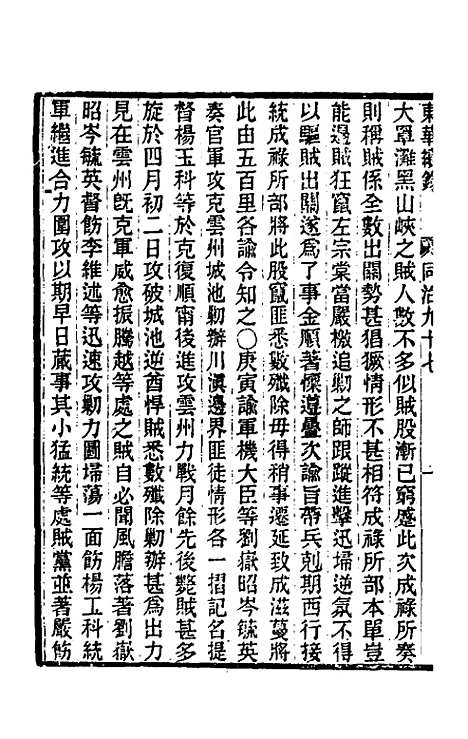 東華續錄 同治九十七 一
大草灘黑山峽之賊人數不多似賊股漸已窮蹙此次成祿所奏
則稱賊係全數出關勢甚猖獗情形不甚相符成祿所部本單豈
能邊賊狂竄左宗棠當嚴檄追勦之師跟蹤進擊迅埽逆氛不得
以驅賊出關遂爲了事金順著懍遵疊次諭旨帶兵剋期西行接
統成祿所部將此股竄匪悉數殲除毋得稍事遷延致成滋蔓將
此由五百里各諭令知之○庚寅諭軍機大臣等劉嶽昭岑毓英
奏官軍攻克雲州城池勦辦川滇邊界匪徒情形各一摺記名提
督楊玉科等於克復順甯後進攻雲州力戰月餘先後斃賊甚多
旋於四月初二日攻破城池逆酋悍賊悉數殲除勦辦甚爲出力
見在雲州旣克軍威愈振騰越等處之賊自必聞風膽落著劉嶽
昭岑毓英督飭李維述等迅速攻勦力圖埽蕩一面飭楊玉科統
軍繼進合力圍攻以期早日蕆事其小猛統等處賊黨並著嚴飭